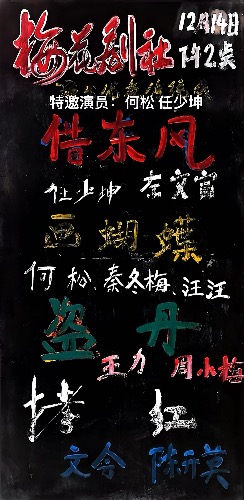 梅花剧社
12月14日
下午2点
特邀演员：何松 任少坤
借东风
任少坤 秦宝富
画蝴蝶
何松、秦冬梅、汪汪
盗丹
王力 周小梅
拷红
文令 陈亦英